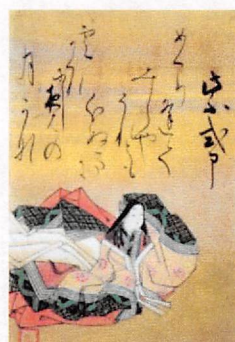 紫式部
めくり逢て
みしや
それとも
わかぬまに
雲かくれ
夜半の
月